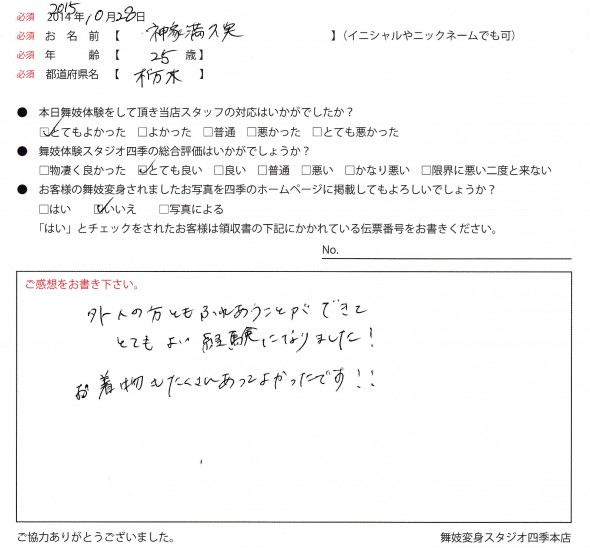 2015
必須 2014年10月28日
必須 お 名 前 【 神家満久実 】（イニシャルやニックネームでも可）
必須 年 齢 【 25 歳】
必須 都道府県名 【 栃木 】
● 本日舞妓体験をして頂き当店スタッフの対応はいかがでしたか？
☑とてもよかった □よかった □普通 □悪かった □とても悪かった
● 舞妓体験スタジオ四季の総合評価はいかがでしょうか？
□物凄く良かった ☑とても良い □良い □普通 □悪い □かなり悪い □限界に悪い二度と来ない
● お客様の舞妓変身されましたお写真を四季のホームページに掲載してもよろしいでしょうか？
□はい ☑いいえ □写真による
「はい」とチェックをされたお客様は領収書の下記にかかれている伝票番号をお書きください。
No.
ご感想をお書き下さい。
外人の方ともふれあうことができて
とてもよい経験になりました！
お着物もたくさんあってよかったです！！
ご協力ありがとうございました。 舞妓変身スタジオ四季本店